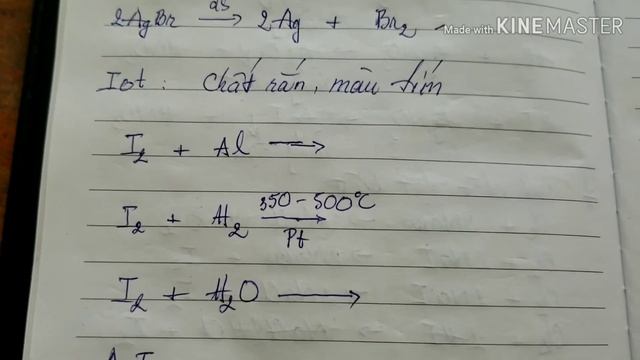 2AgBr as → 2Ag + Br2
Made with KINEMASTER
Iot : Chất rắn, màu tím
I2 + Al →
I2 + H2 350 - 500°C → Pt
I2 + H2O →